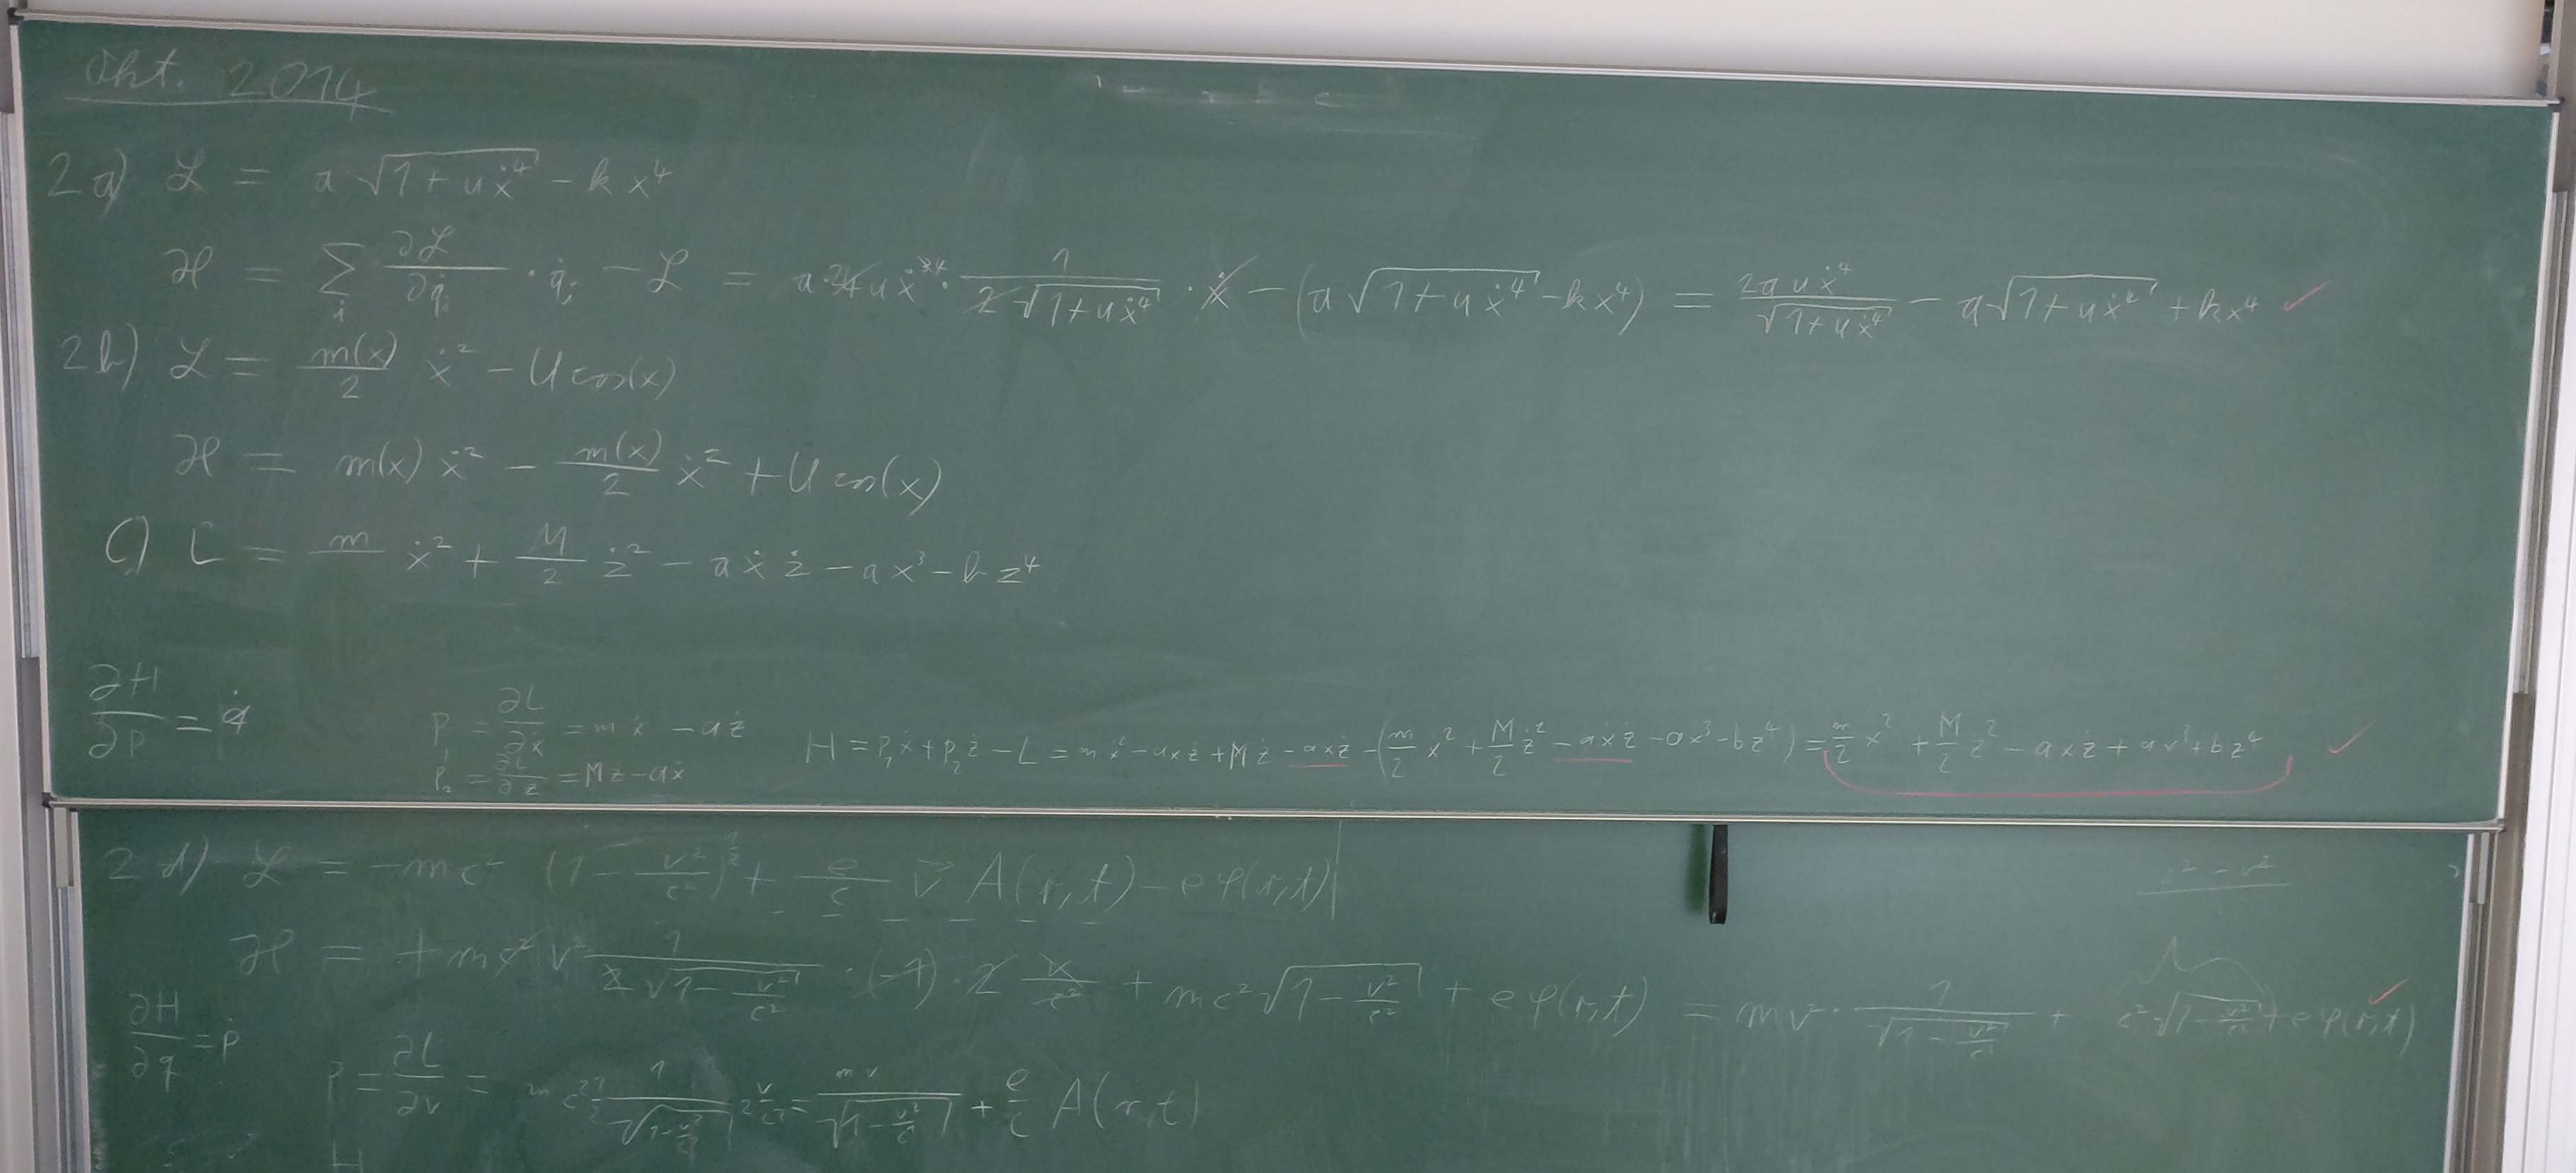 Okt. 2014
2a) ℒ = a √(1+uẋ⁴) - k x⁴
ℋ = ∑ᵢ ∂ℒ/∂q̇ᵢ · q̇ᵢ - ℒ = a·2̶4̶uẋ³̶⁴ · 1/(2̶√(1+uẋ⁴)) · ẋ̶ - (a√(1+uẋ⁴) - kx⁴) = 2auẋ⁴/√(1+uẋ⁴) - a√(1+uẋ⁴) + kx⁴ ✓
2b) ℒ = m(x)/2 ẋ² - U cos(x)
ℋ = m(x) ẋ² - m(x)/2 ẋ² + U cos(x)
c) L = m/ ẋ² + M/2 ż² - aẋż - ax³ - bz⁴
∂H/∂p = q̇
p₁ = ∂L/∂ẋ = mẋ - aż
p₂ = ∂L/∂ż = Mż - aẋ
H = p₁ẋ + p₂ż - L = mẋ² - aẋż + Mż - aẋż - (m/2 ẋ² + M/2 ż² - aẋż - ax³ - bz⁴) = m/2 ẋ² + M/2 ż² - aẋż + ax³ + bz⁴ ✓
2d) ℒ = -mc² (1 - v²/c²)^(1/2) + e/c v⃗ A(r,t) - eφ(r,t)
c² - v²
ℋ = +mc̶²̶ v 1/(2̶√(1 - v²/c²)) · (-1) · 2̶ v/c̶²̶ + mc²√(1 - v²/c²) + eφ(r,t) = mv² · 1/√(1 - v²/c²) + c²√(1 - v²/c²) + eφ(r,t) ✓
∂H/∂q = ṗ
p = ∂L/∂v = mc² 1/2 1/√(1 - v²/c²) 2 v/c² = mv/√(1 - v²/c²) + e/c A(r,t)
H